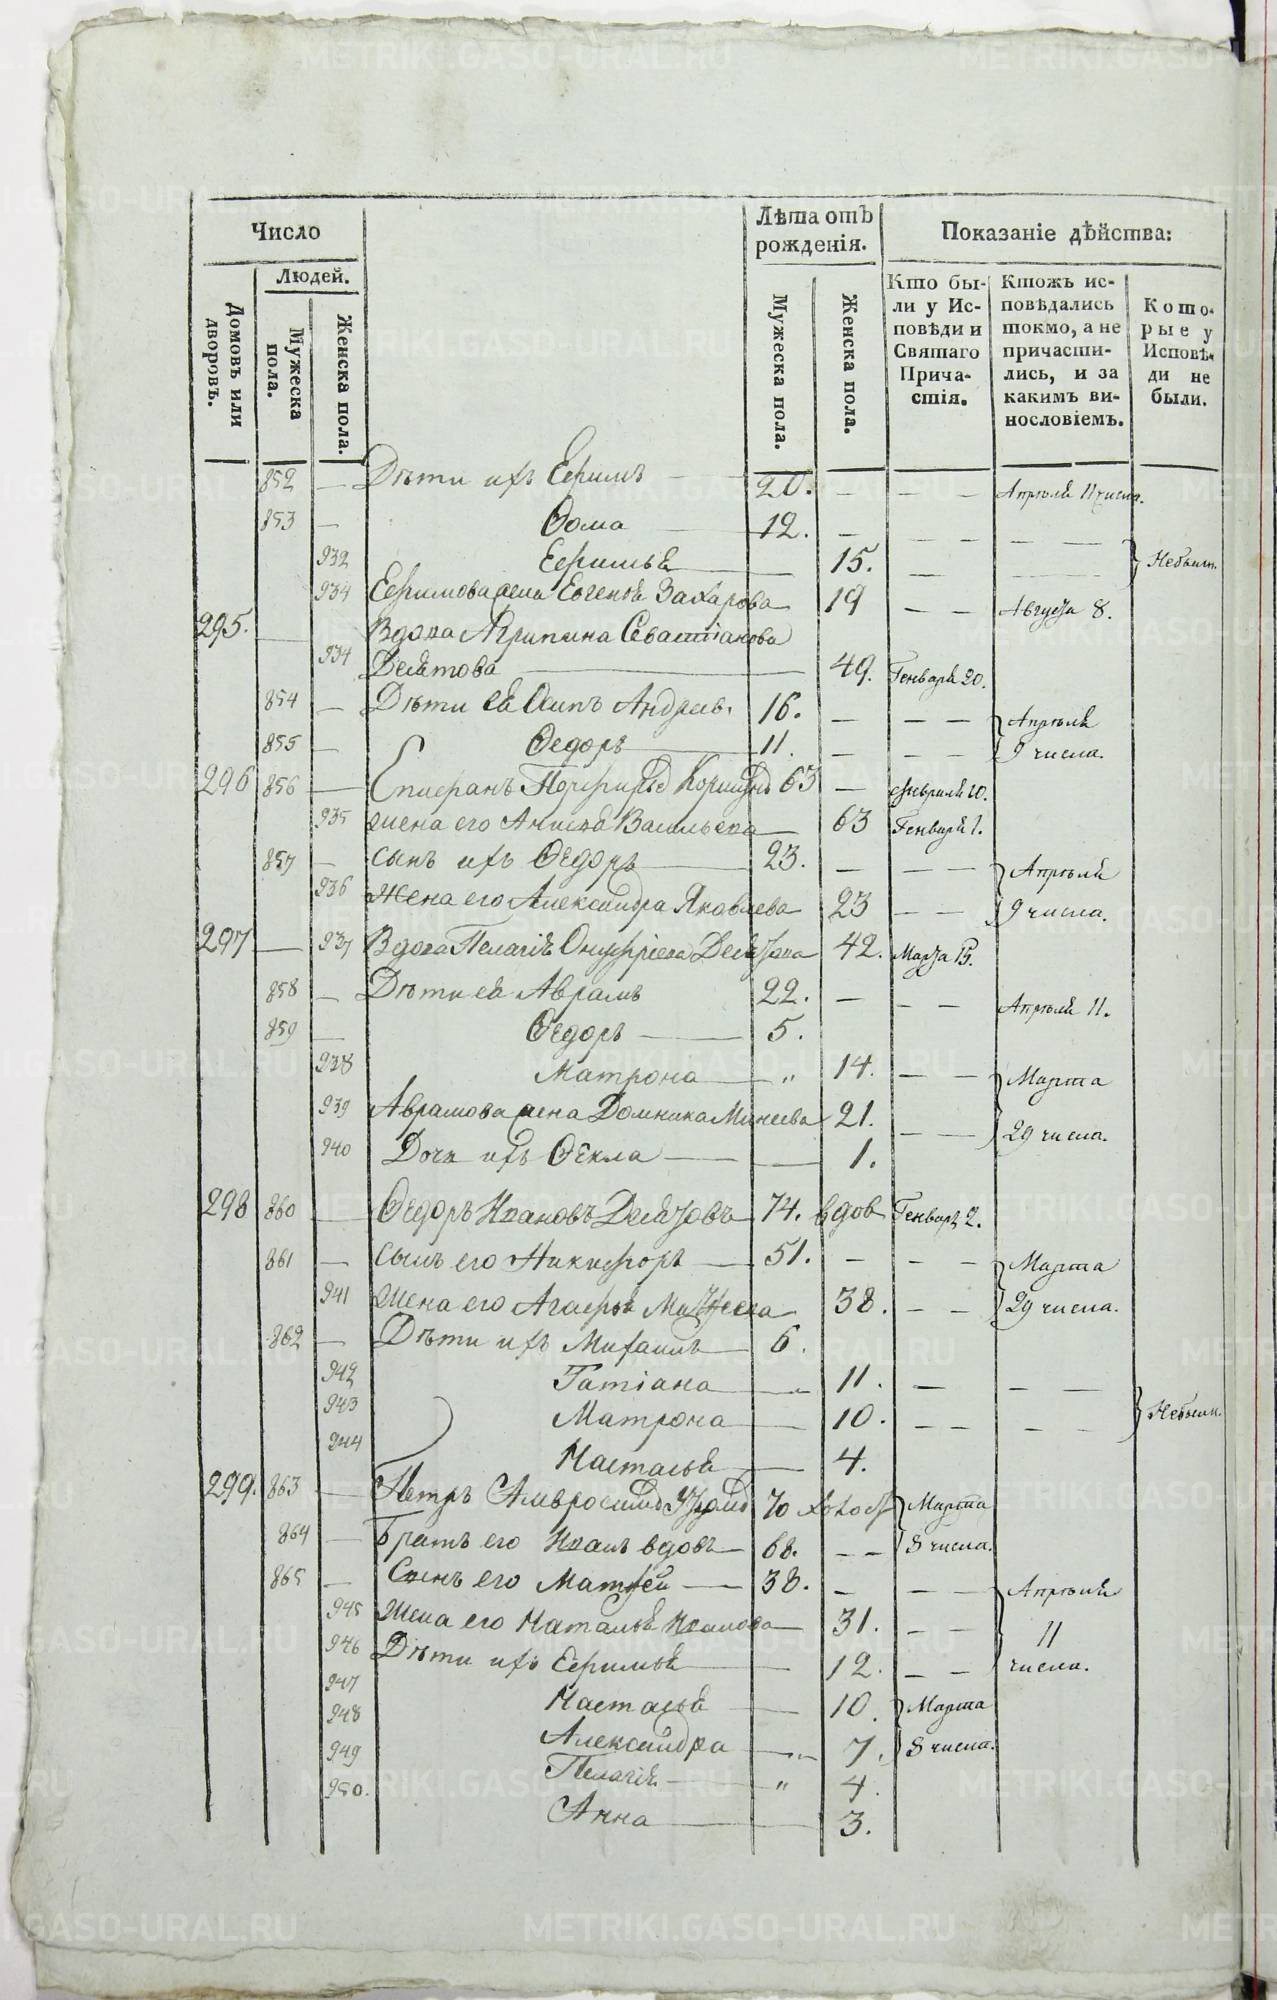 Число
Лѣта отъ рожденія.
Показаніе дѣйства:
Людей.
Домовъ или дворовъ.
Мужеска пола.
Женска пола.
Мужеска пола.
Женска пола.
Кто бы-
ли у Ис-
повѣди и
Святаго
Прича-
стія.
Ктожъ ис-
повѣдались
токмо, а не
причасти-
лись, и за
какимъ ви-
нословіемъ.
Кото-
рые у
Исповѣ-
ди не
были.
852 — Дѣти ихъ Ефимъ — 20. — — — Апрѣля 11 числа.
853 — Ѳома — 12. — — — — —
932 Ефимья — 15. — — — Небыли.
934 Ефимова жена Евгенія Захарова 19 — — Августа 8.
295. — Вдова Агрипина Севастіанова
934 Делятова — 49. Генваря 20.
854 — Дѣти ея Осипъ Андреев. 16. — — — Апрѣля
855 — Ѳедоръ — 11. — — — 9 числа.
296 856 — Епифанъ 63 — Февраля 10.
935 жена его Анисья Васильева — 63 Генваря 1.
857 — сынъ ихъ Ѳедоръ — 23. — — — Апрѣля
936 Жена его Александра Яковлева 23 — — 9 числа.
297 — 937 Вдова Пелагія Онуфріева 42. Марта 15.
858 — Дѣти ея Аврамъ 22. — — — Апрѣля 11.
859 — Ѳедоръ — 5.
938 Матрона — „ 14. — — Марта
939 Аврамова жена Домника Минеева 21. — — 29 числа.
940 Дочь ихъ Ѳекла — — 1.
298 860 — Ѳедоръ Ивановъ 74. вдов Генваря 2.
861 — сынъ его Никифоръ — 51. — — — Марта
941 Жена его Агафья 38. — — 29 числа.
862 — Дѣти ихъ Михаилъ — 6.
942 Татіана — 11. — — —
943 Матрона — 10. — — — — Небыли.
944 Настасья — 4.
299. 863 — Петръ 70 холост Марта
864 — Братъ его Иванъ вдовъ — 68. — — 8 числа.
865 — Сынъ его Матфей — 38. — — — Апрѣля
945 Жена его Наталья Иванова — 31. — — 11
946 Дѣти ихъ Ефимья — 12. — — числа.
947
Настасья — 10. Марта
948
Александра — 7. 8 числа.
949
Пелагія — „ 4.
950.
Анна — 3.
METRIKI.GASO-URAL.RU